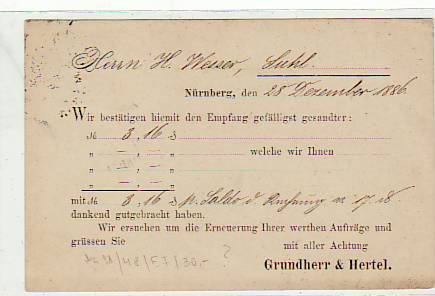 Herrn H. Wesser, Suhl.
Nürnberg, den 28 Dezember 1886
Wir bestätigen hiemit den Empfang gefälligst gesandter:
M 3,16 ₰
„ — , — „ welche wir Ihnen
„ — , — „
mit M 3,16 p. Saldo d.
dankend gutgebracht haben.
Wir ersuchen um die Erneuerung Ihrer werthen Aufträge und
grüssen Sie mit aller Achtung
Grundherr & Hertel.